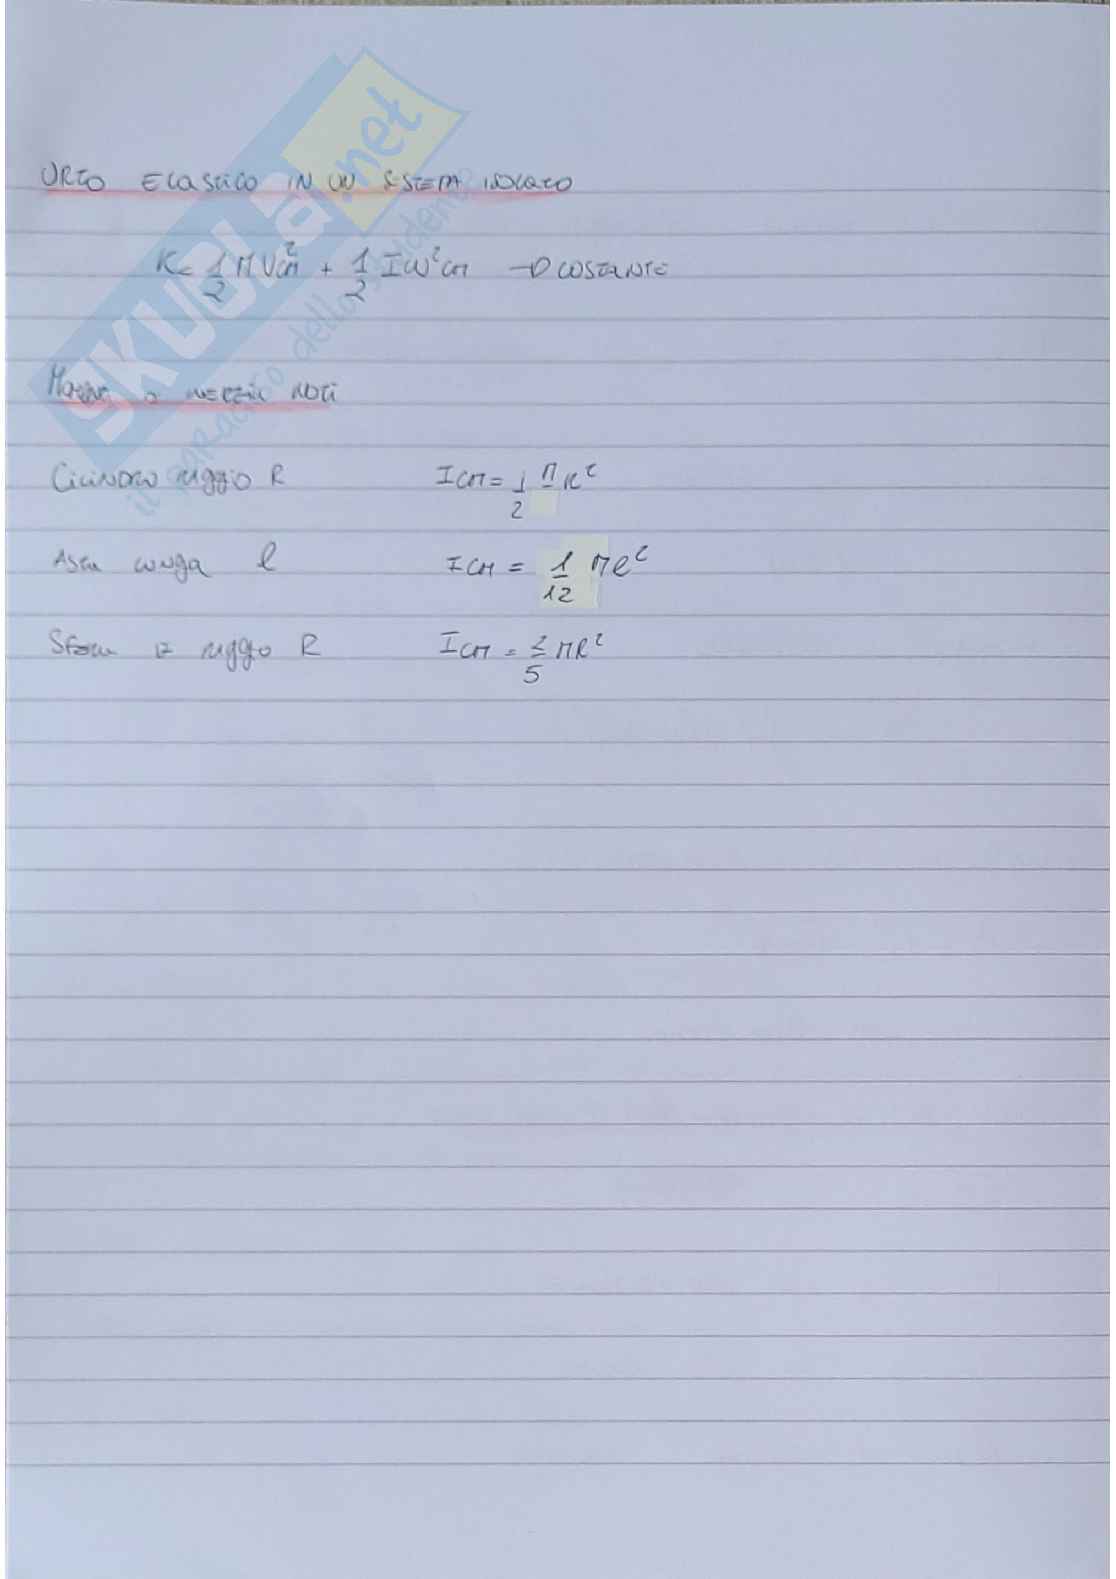 URTO ELASTICO IN UN SISTEMA ISOLATO
K= 1/2 M V²cm + 1/2 I ω² cm → COSTANTE
INERZIA NOTI
CILINDRO raggio R ICM = 1/2 M R²
ASTA lunga l ICM = 1/12 M l²
SFERA raggio R ICM = 2/5 M R²
SKUOLA.net
il paradiso dello studente